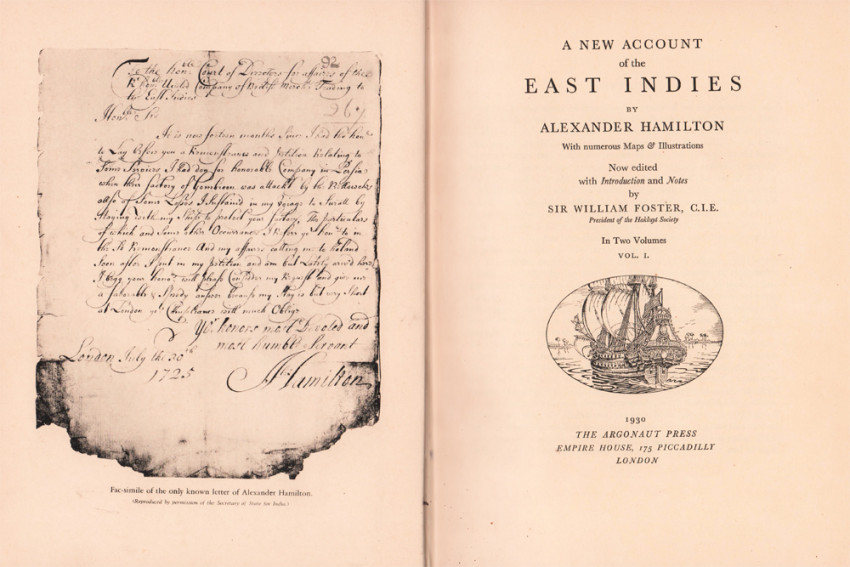 92
To the Honble Court of Directors for affairs of the
Honble United Company of Merchts Trading to
the East Indies
267
Honble Sirs
It is now fourteen months since I had the honr
to Lay before you a Remonstrance and Petition Relating to
Some Services I had don for honorable Company in Persia
when their factory of Gombroon was attackt by the
also of Some Losses I Sustained in my voyage to Suratt by
Staying with my Ship to protect your factory. The particulars
of which and Some other Occurances I Refer yr honrs to in
the Remonstrance And my affairs calling me to Holand
Soon after I put in my Petition and am but Lately arrived here
I begg your honrs will please Consider my Request and give me
a favorable & Speedy answer because my Stay is but very Short
at London yt will much Oblige
Yor honors most Devoted and
most humble Servant
London July the 30th
1725
A Hamilton
Fac-simile of the only known letter of Alexander Hamilton.
(Reproduced by permission of the Secretary of State for India.)
A NEW ACCOUNT
of the
EAST INDIES
BY
ALEXANDER HAMILTON
With numerous Maps & Illustrations
Now edited
with Introduction and Notes
by
SIR WILLIAM FOSTER, C.I.E.
President of the Hakluyt Society
In Two Volumes
VOL. I.
1930
THE ARGONAUT PRESS
EMPIRE HOUSE, 175 PICCADILLY
LONDON